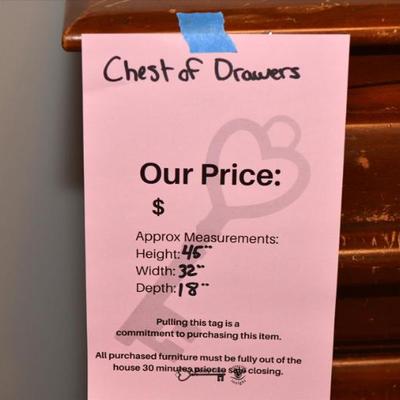 Chest of Drawers
Our Price:
$
Approx Measurements:
Height: 45"
Width: 32"
Depth: 18"
Pulling this tag is a
commitment to purchasing this item.
All purchased furniture must be fully out of the
house 30 minutes prior to sale closing.